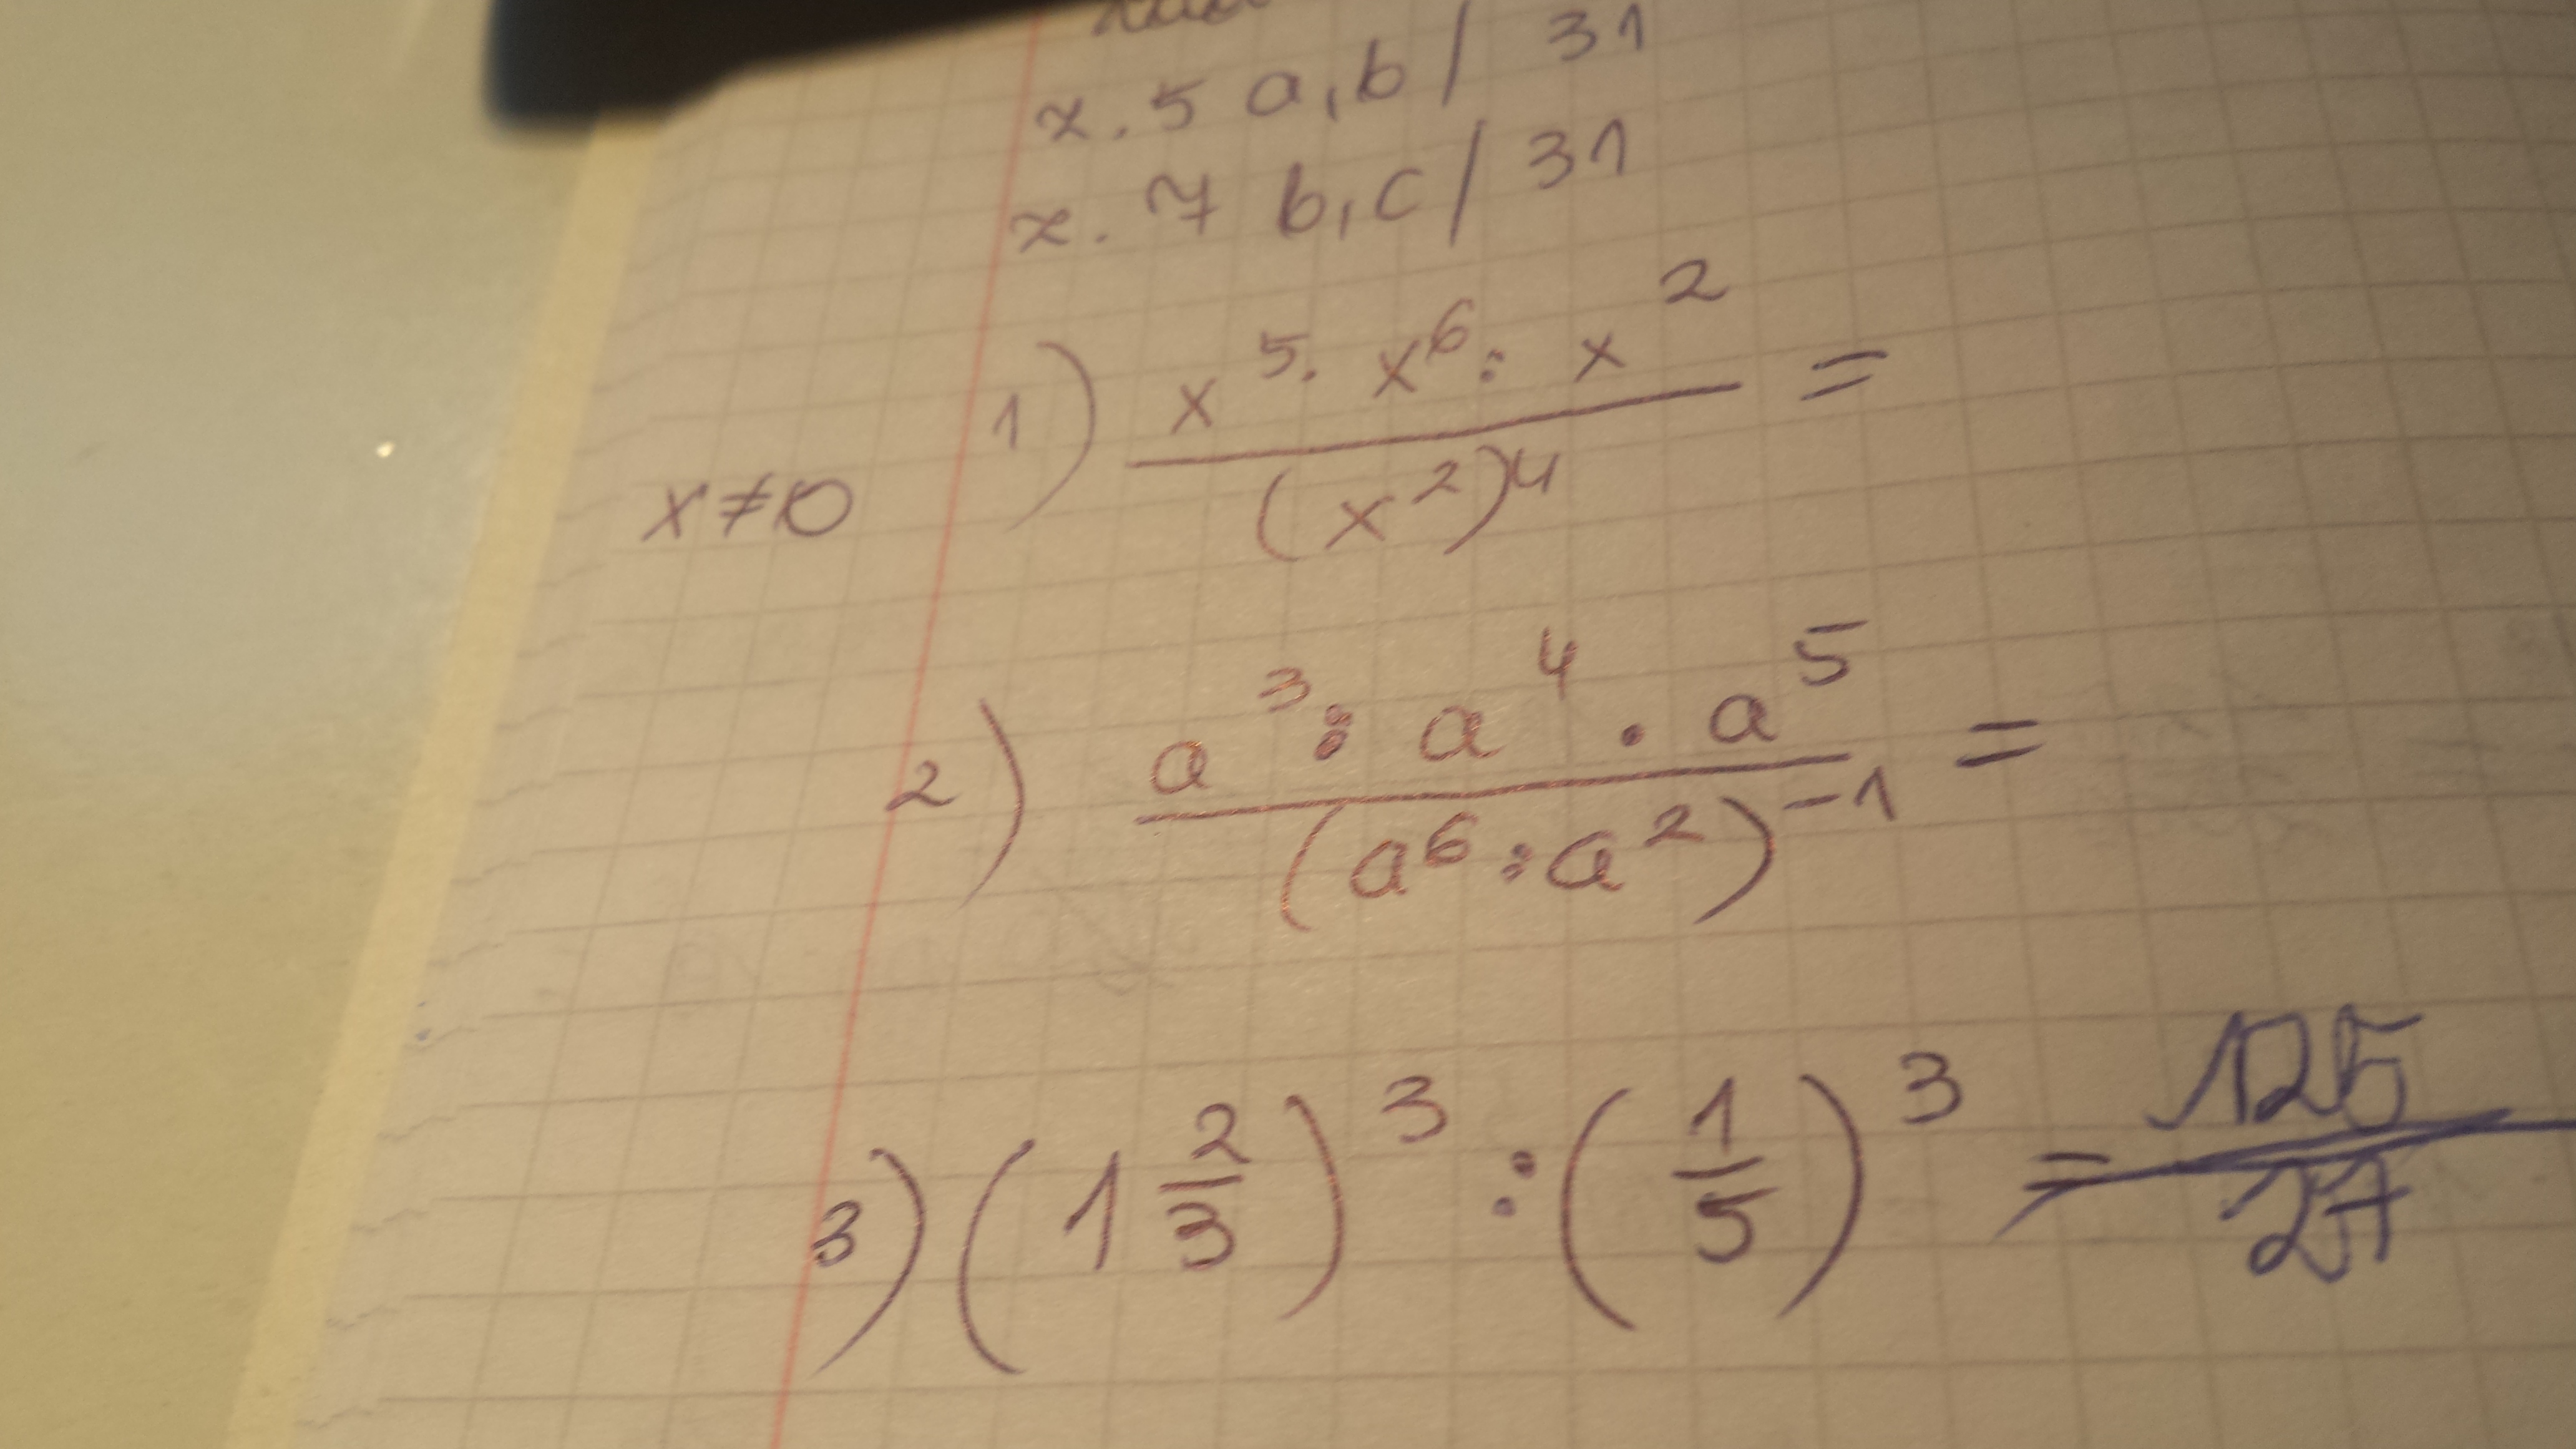 z. 5 a, b / 31
z. 7 b, c / 31
x ≠ 0
1) (x⁵ · x⁶ : x²) / (x²)⁴ =
2) (a³ : a⁴ · a⁵) / (a⁶ : a²)⁻¹ =
3) (1 2/3)³ : (1/5)³ = 125/27